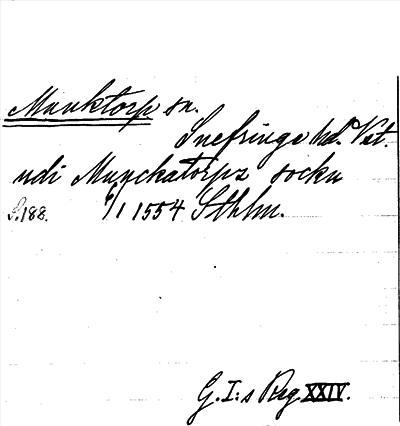 Munktorp sn.
Snefringe hd. Vst.
udi Munckatorps sockn
S. 188. 6/1 1554 Sthlm.
G. I:s Reg XXIV.